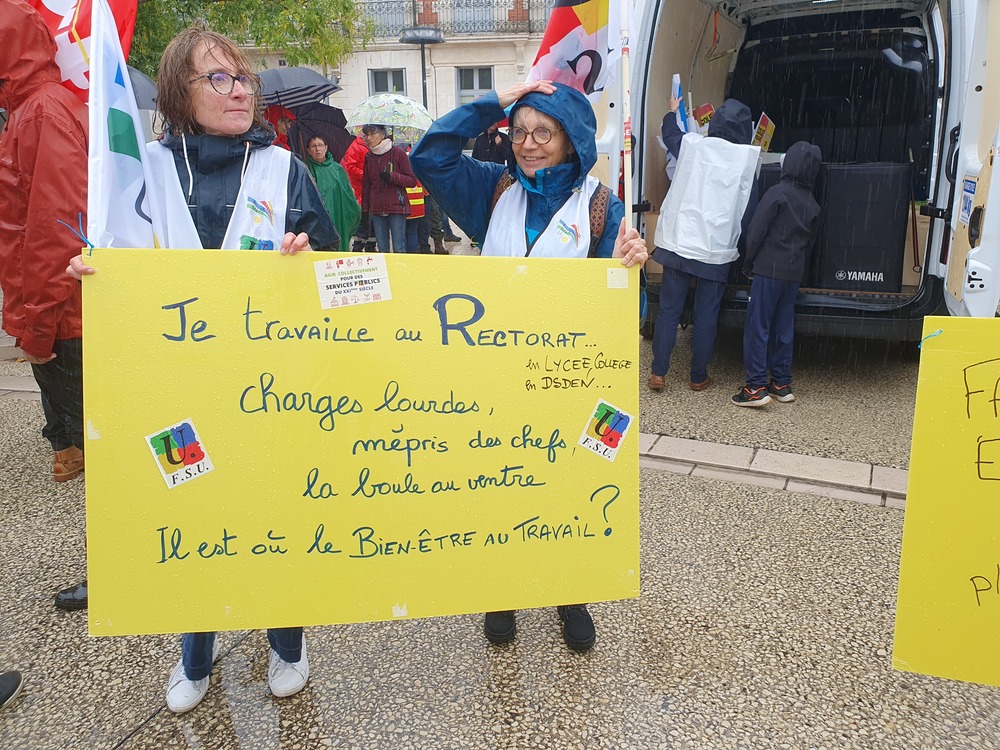 AGIR COLLECTIVEMENT
POUR DES
SERVICES PUBLICS
DU XXIème SIÈCLE
Je travaille au RECTORAT...
en LYCEE, COLLEGE
en DSDEN...
charges lourdes,
mépris des chefs,
la boule au ventre
Il est où le BIEN-ÊTRE AU TRAVAIL ?
U.
F.S.U.
U.
F.S.U.
YAMAHA